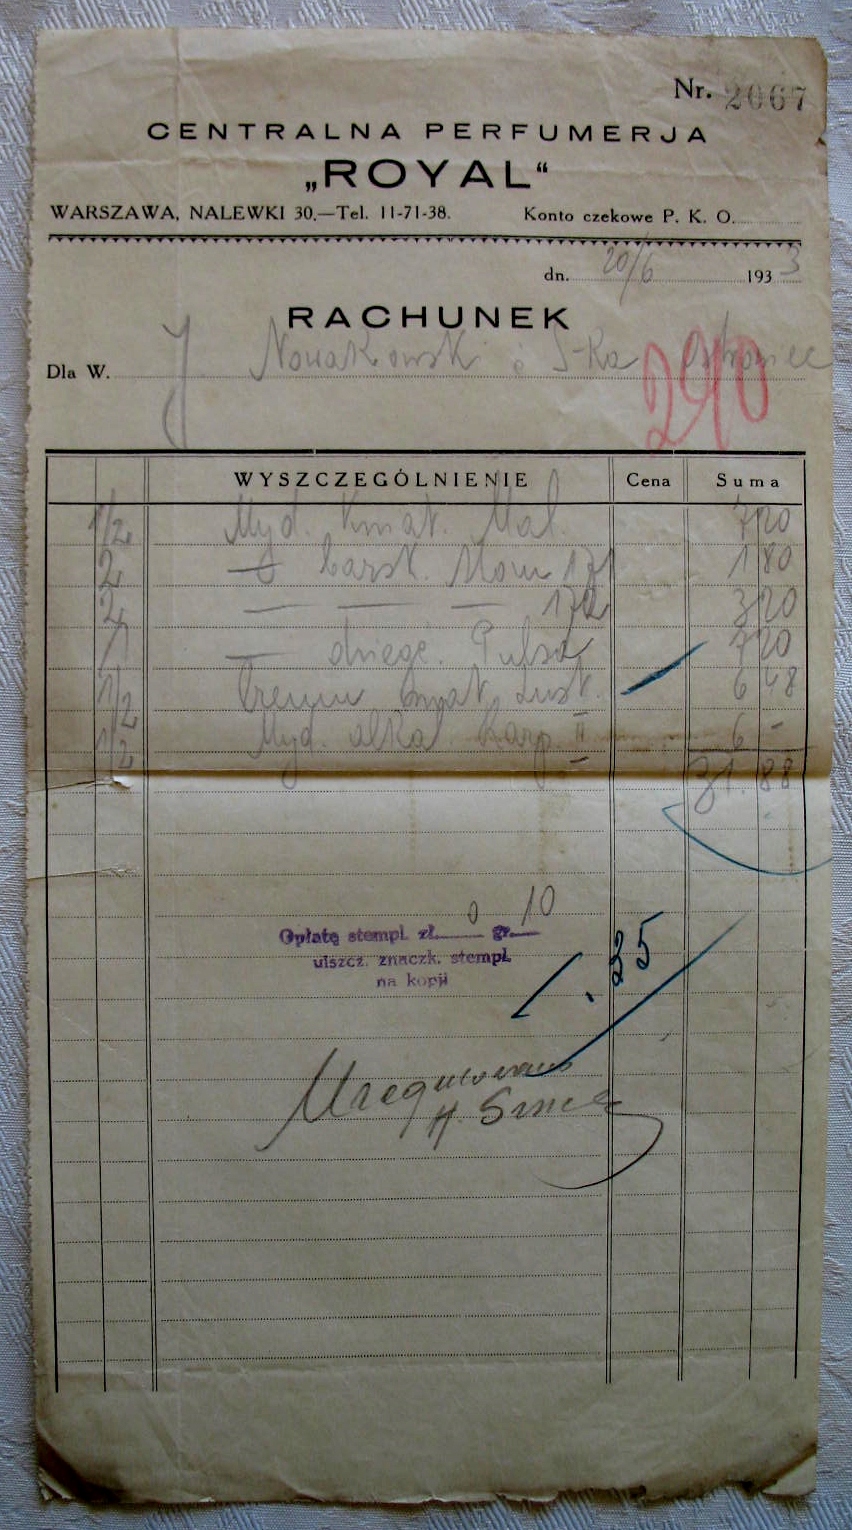 Nr. 2067
CENTRALNA PERFUMERJA
„ROYAL“
WARSZAWA, NALEWKI 30.—Tel. 11-71-38. Konto czekowe P. K. O.
dn. 20/6 1933
RACHUNEK
Dla W. J Nowakowski i S-ka Ostrowiec
290
WYSZCZEGÓLNIENIE Cena Suma
1/2 Myd. Kwiat. Mal. 7 20
2 171 1 80
2 — — — 172 3 20
1 — dziegć. Pulsa 7 20
1/2 6 48
1/2 Myd. alkal. Karp. II 6 -
31. 88
0 10
Opłatę stempl. zł. gr.
uiszcz. znaczk. stempl.
na kopji
. 35
Uregulowano
H.